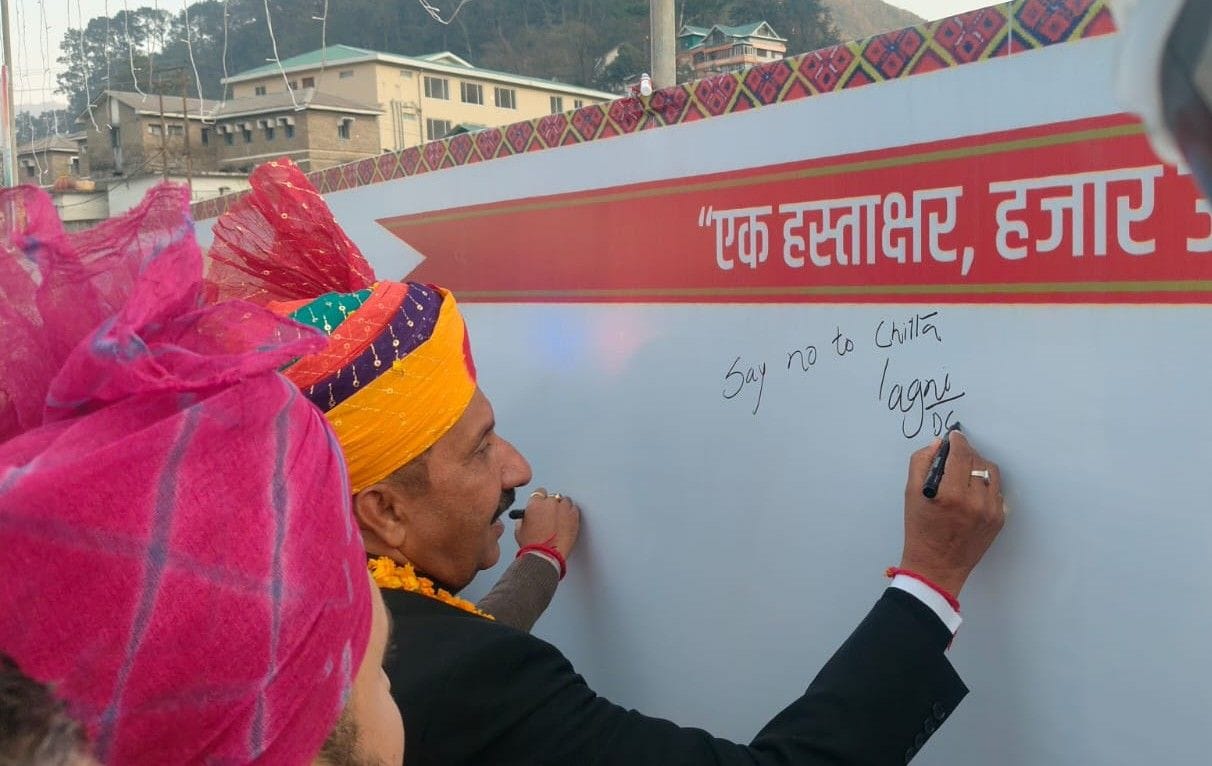 “एक हस्ताक्षर, हजार
Say no to Chitta
DC